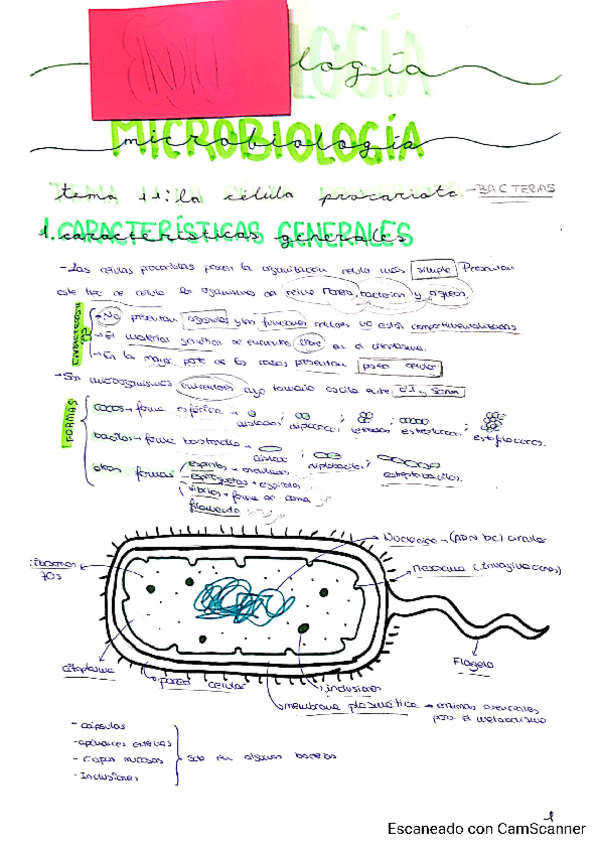 logía
microbiología
tema 11: la célula procariota - BACTERIAS
1. características generales
- Las células procariotas poseen la organización celular más simple. Presentan
este tipo de célula los organismos del reino Monera, bacterias y
CARACTERÍSTICAS
- No presentan orgánulos y las funciones celulares no están compartimentalizadas
- El material genético se encuentra libre en el citoplasma.
- En la mayor parte de los casos presentan pared celular
- Son microorganismos unicelulares cuyo tamaño oscila entre
FORMAS
cocos → forma esférica →
aislados; diplococos; tetradas; estreptococos; estafilococos.
bacilos → forma bastoncillo →
aislados; diplobacilos; estreptobacilos.
otras formas
espirilos
espiroquetas → espirales
vibrios → forma de coma
filamento
Nucleoide → (ADN bc) circular
ribosomas
70s
mesosoma (invaginaciones)
Flagelo
citoplasma
pared celular
inclusiones
membrana plasmática → enzimas esenciales
para el metabolismo
- cápsulas
- apéndices externos
- capas mucosas
- Inclusiones
solo en algunas bacterias
1
Escaneado con CamScanner